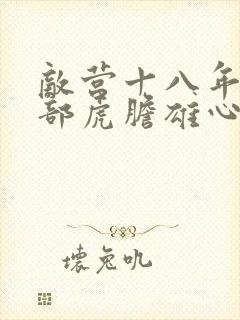 敵营十八年
部虎膽雄心
壞兔叽